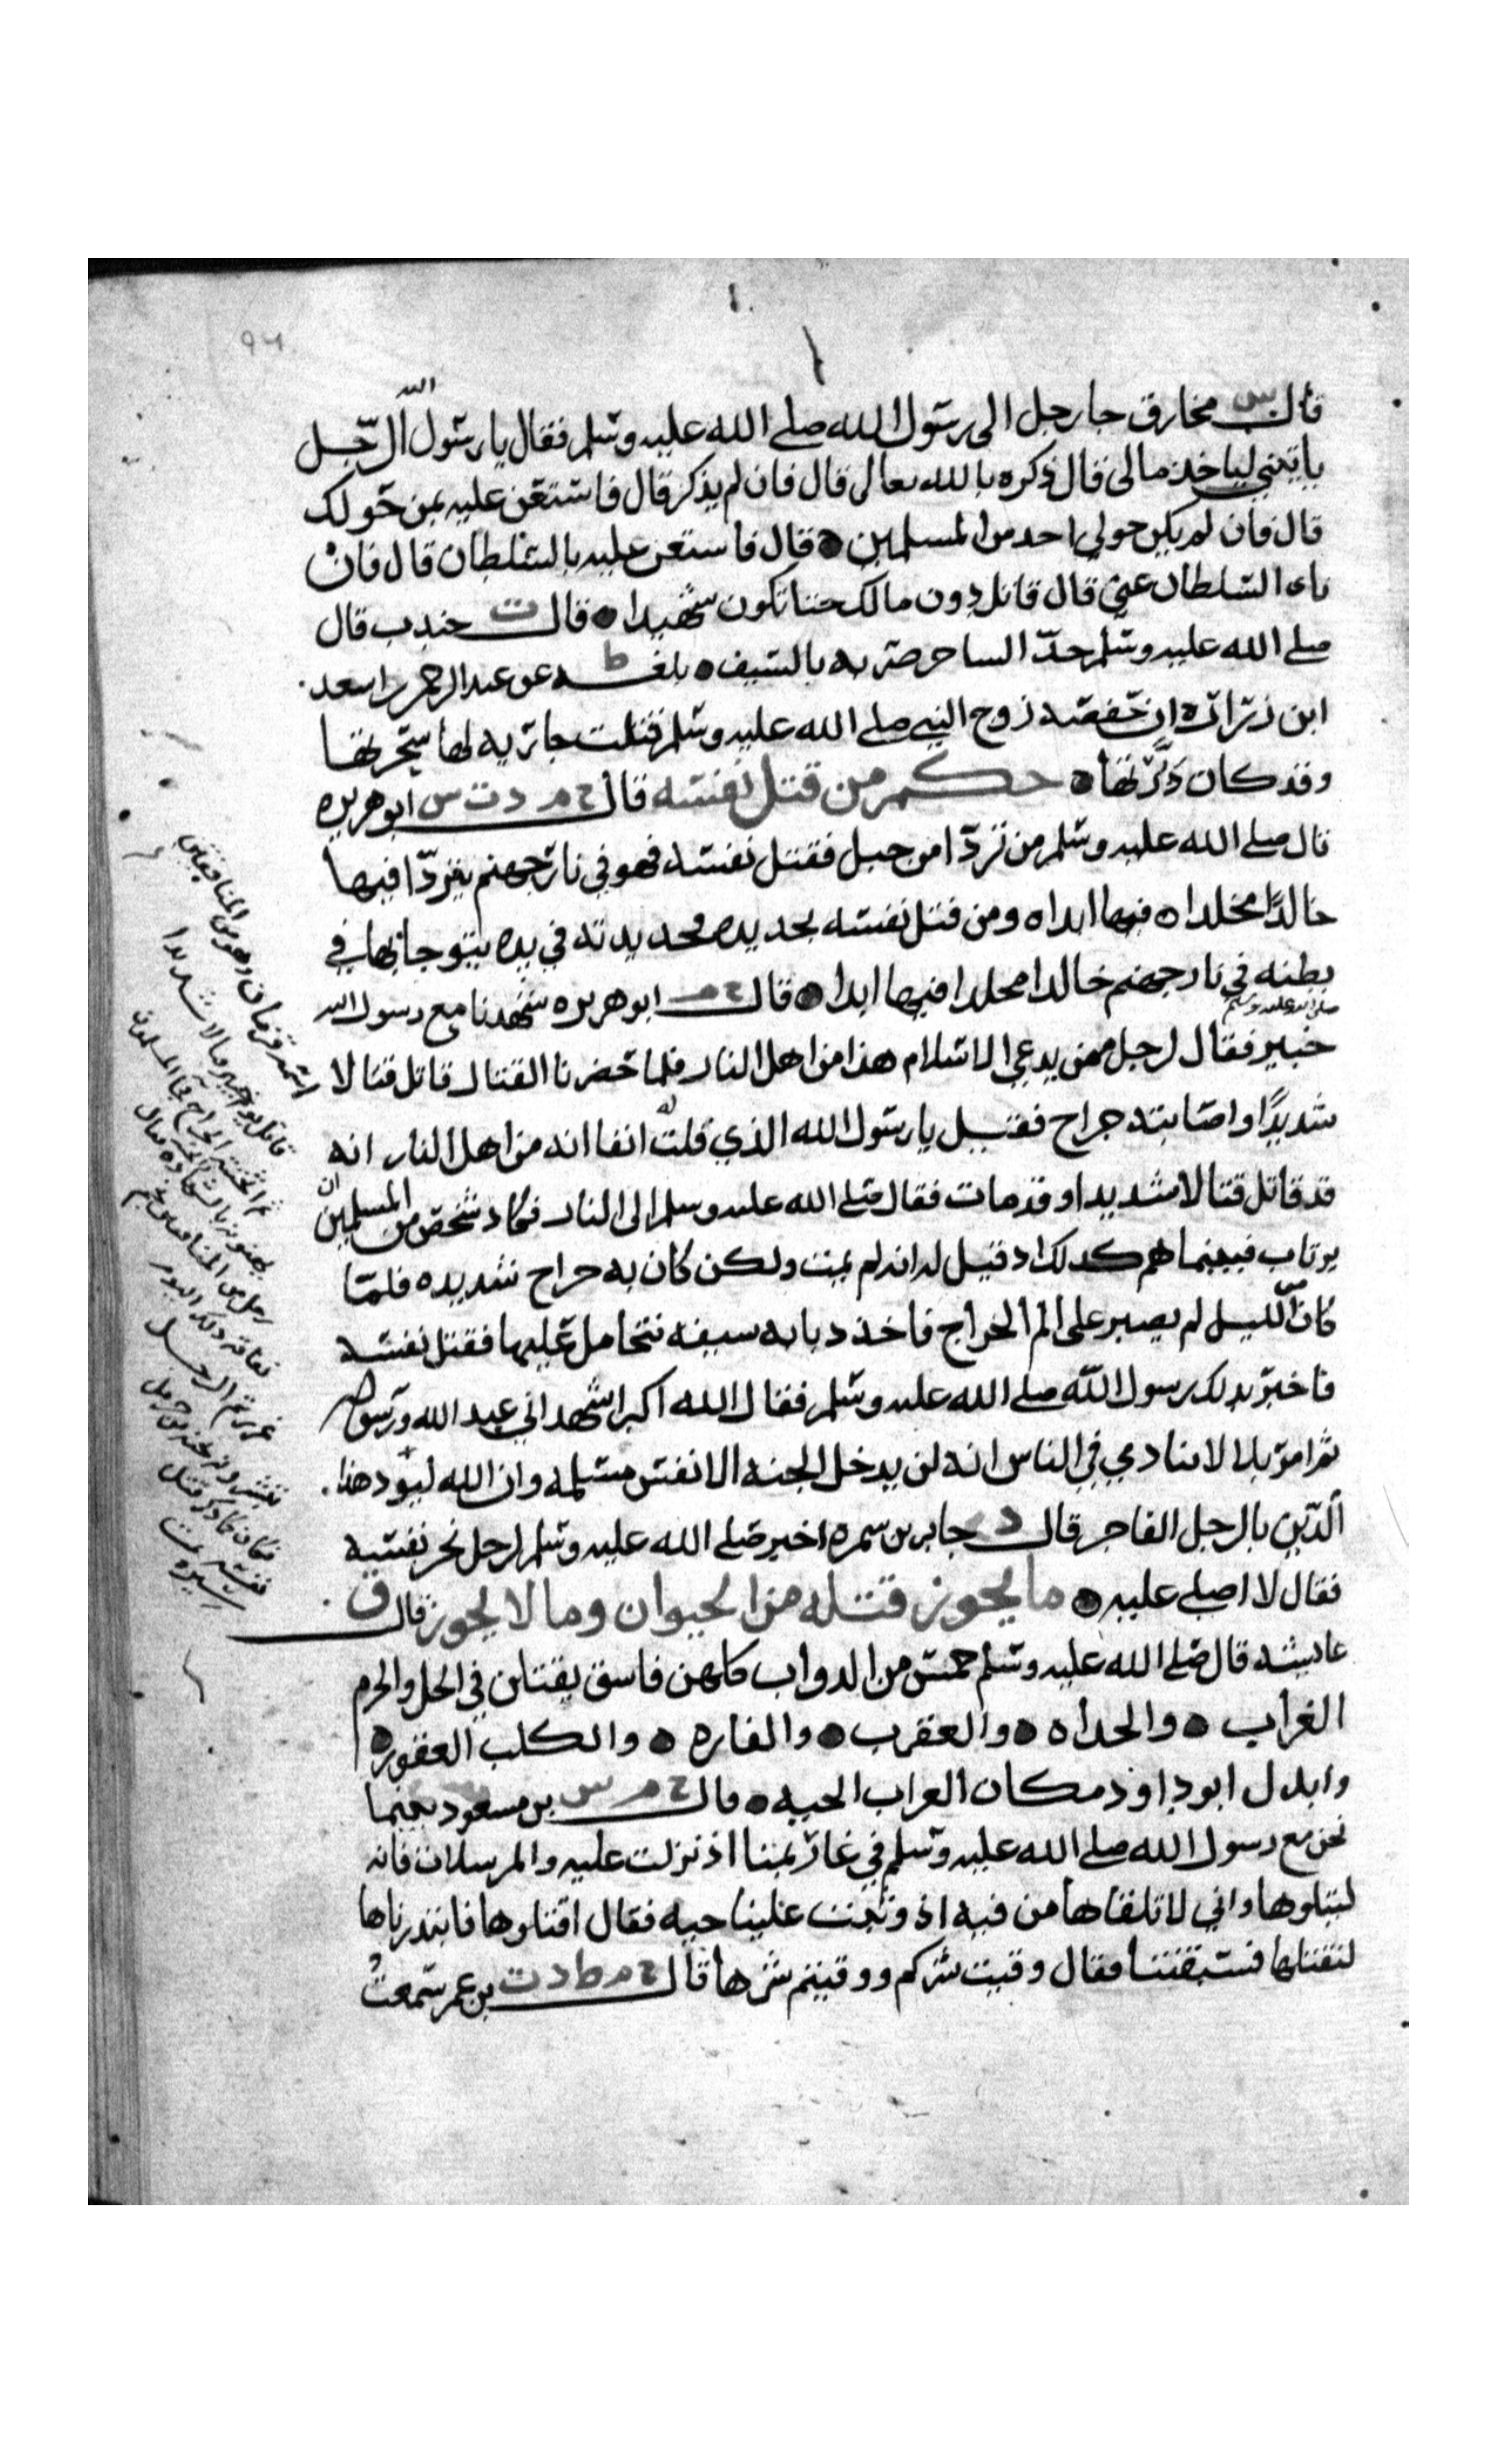 ٩٤
قال س مخارق جا رجل الى رسول الله صلى الله عليه وسلم فقال يا رسول الله الرّجل
ياتيني لياخذ مالى قال ذكره بالله تعالى قال فان لم يذكر قال فاستعن عليه بمن حولك
قال فان لم يكن حولي احد من المسلمين ۞ قال فاستعن عليه بالسلطان قال فان
ناء السلطان عني قال قاتل دون مالك حتا تكون شهيدا ۞ قال ت جندب قال
صلى الله عليه وسلم حدّ الساحر ضربه بالسيف ۞ بلغه ط عن عبد الرحمن بن اسعد
ابن زراره ان حفصه زوج النبي صلى الله عليه وسلم قتلت جاريه لها سحرتها
وقد كان دبرتها ۞ حكم من قتل نفسه قال خ م د ت س ابو هريره
قال صلى الله عليه وسلم من تردّا من جبل فقتل نفسه فهو في نار جهنم يتردّا فيها
خالدًا مخلدا ٥ فيها ابدا ٥ ومن قتل نفسه بحديده فحديدته في يده يتوجا بها في
بطنه في نار جهنم خالدا مخلدا فيها ابدا ۞ قال خ م ابو هريره شهدنا مع رسول الله
صلى الله عليه وسلم
خيبر فقال لرجل ممن يدعي الاسلام هذا من اهل النار فلما حضرنا القتال قاتل قتالا
شديدًا واصابته جراح فقيل يا رسول الله الذي قلت له انفا انه من اهل النار انه
قد قاتل قتالا شديدا وقد مات فقال صلى الله عليه وسلم الى النار فكاد شخص من المسلمين ان
يرتاب فبينما هم كدلك اد قيل له انه لم يمت ولكن كان به جراح شديده فلما
كان من الليل لم يصبر على الم الجراح فاخذ دبابه سيفه فتحامل عليها فقتل نفسه
فاخبر بدلك رسول الله صلى الله عليه وسلم فقال الله اكبر اشهد اني عبد الله ورسوله
ثم امر بلالا ينادي في الناس انه لن يدخل الجنه الا نفس مسلمه وان الله ليؤيد هذا
الدّين بالرجل الفاجر قال د جابر بن سمره اخبر صلى الله عليه وسلم لرجل نحر نفسه
فقال لا اصلي عليه ۞ ما يجوز قتله من الحيوان وما لا يجوز قال ق
عايشه قال صلى الله عليه وسلم خمس من الدواب كلهن فاسق يقتلن في الحل والحرم
الغراب ۞ والحداه ۞ والعقرب ۞ والفاره ۞ والكلب العقور ۞
وابدل ابو داود مكان الغراب الحيه ۞ قال خ م س بن مسعود بينما
نحن مع رسول الله صلى الله عليه وسلم في غار بمنا اذ نزلت عليه والمرسلات فانه
ليتلوها واني لاتلقاها من فيه اذ وثبت علينا حيه فقال اقتلوها فابتدرناها
لنقتلها فسبقتنا فقال وقيت شركم ووقيتم شرها قال خ م ط د ت بن عمر سمعت
اسمه قزمان وهو من المنافقين
قاتل يوم خيبر قتالا شديدا